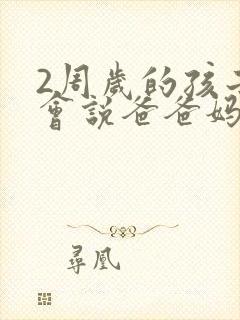 2周歲的孩子
會說爸爸媽
尋凰